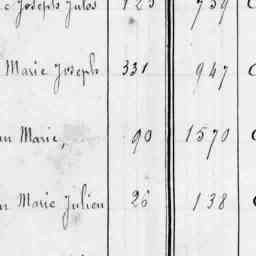 Joseph Jules 125 759
Marie Joseph 331 947
Marie, 90 1570
Marie Julien 26 138